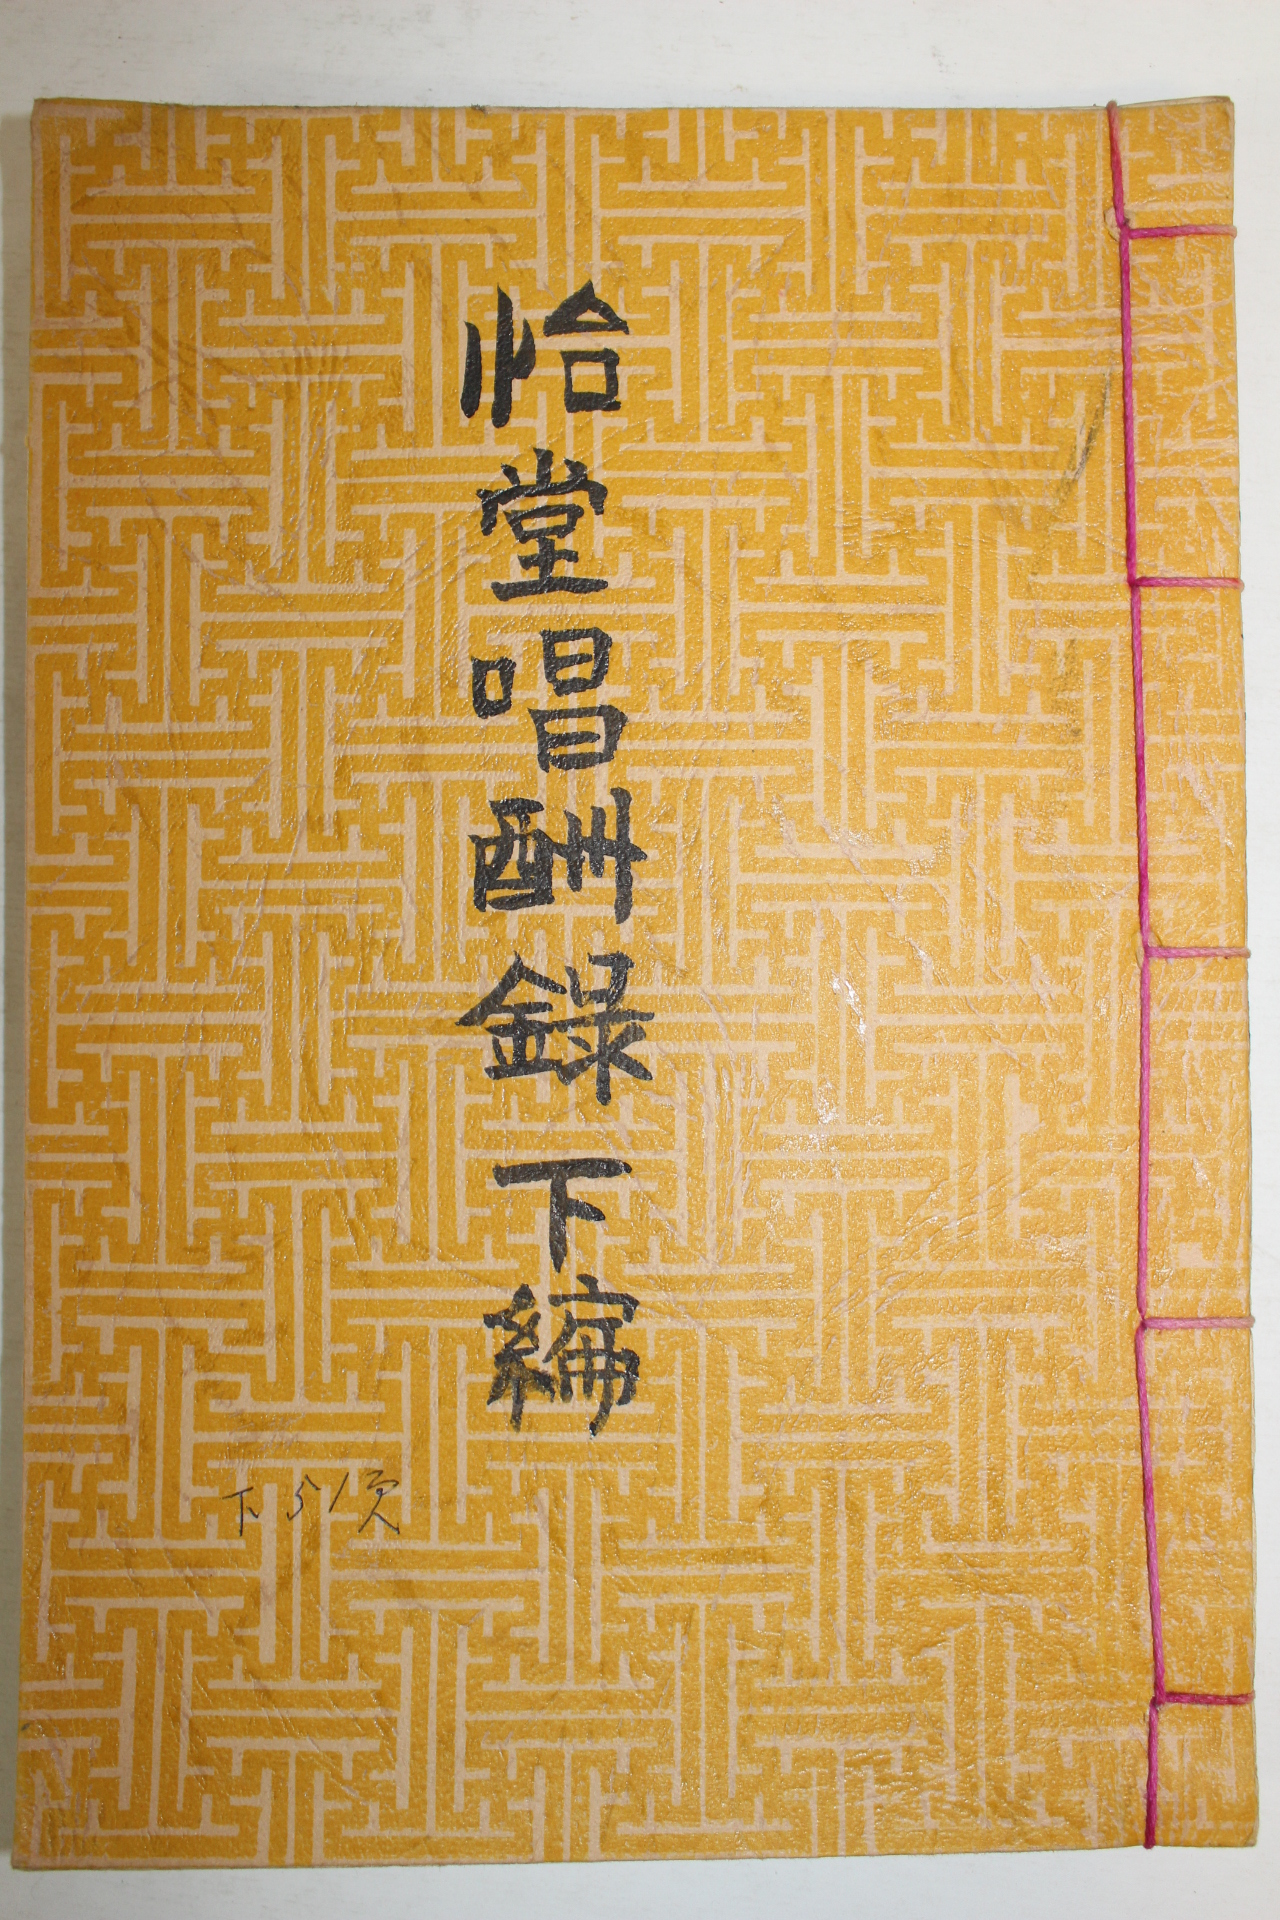 恰堂唱酬錄下編
下51页